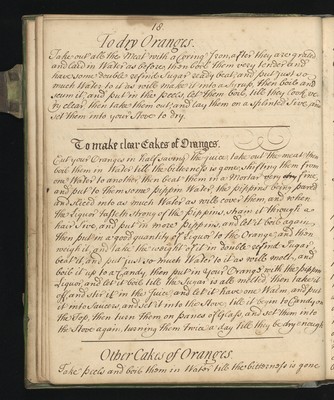 18.
To dry Oranges.
Take out all the Meat with a Coring Iron, after they are grated
and laid in Water as before, then boil them very tender and
have some Double refin'd Sugar ready beat, and put just so
much Water to it as will make it into a Syrup, then boil and
scum it, and put in the peels, let them boil till they look ve
ry clear, then take them out and lay them on a splinted Sive, and
set them into your Stove to dry.
To make clear Cakes of Oranges.
Cut your Oranges in half, saving the juice, take out the meat then
boil them in Water till the bitterness is gone, shifting them from
one Water to another, then beat them in a Mortar very fine,
and put to them some pippin Water, the pippins being pared
and sliced into as much Water as will cover them, and when
the liquor tasts strong of the pippins, strain it through a
hair Sive, and put in more pippins, and let it boil again,
then put in a good quantity of liquor to the Orange, and then
weigh it, and take the weight of it in double refin'd Sugar
beat it, and put just so much Water to it as will melt, and
boil it up to a Candy, then put in your Orange with the pippin
liquor, and let it boil till the Sugar is all melted, then take it
off and stir it in the juice, and let it have one Walm, and put
it into Saucers, and set it into the Stove till it begin to Candy on
the Top, then turn them on panes of Glass, and set them into
the Stove again, turning them twice a day till they be dry enough
Other Cakes of Oranges.
Take peels and boil them in Water till the bitterness is gone